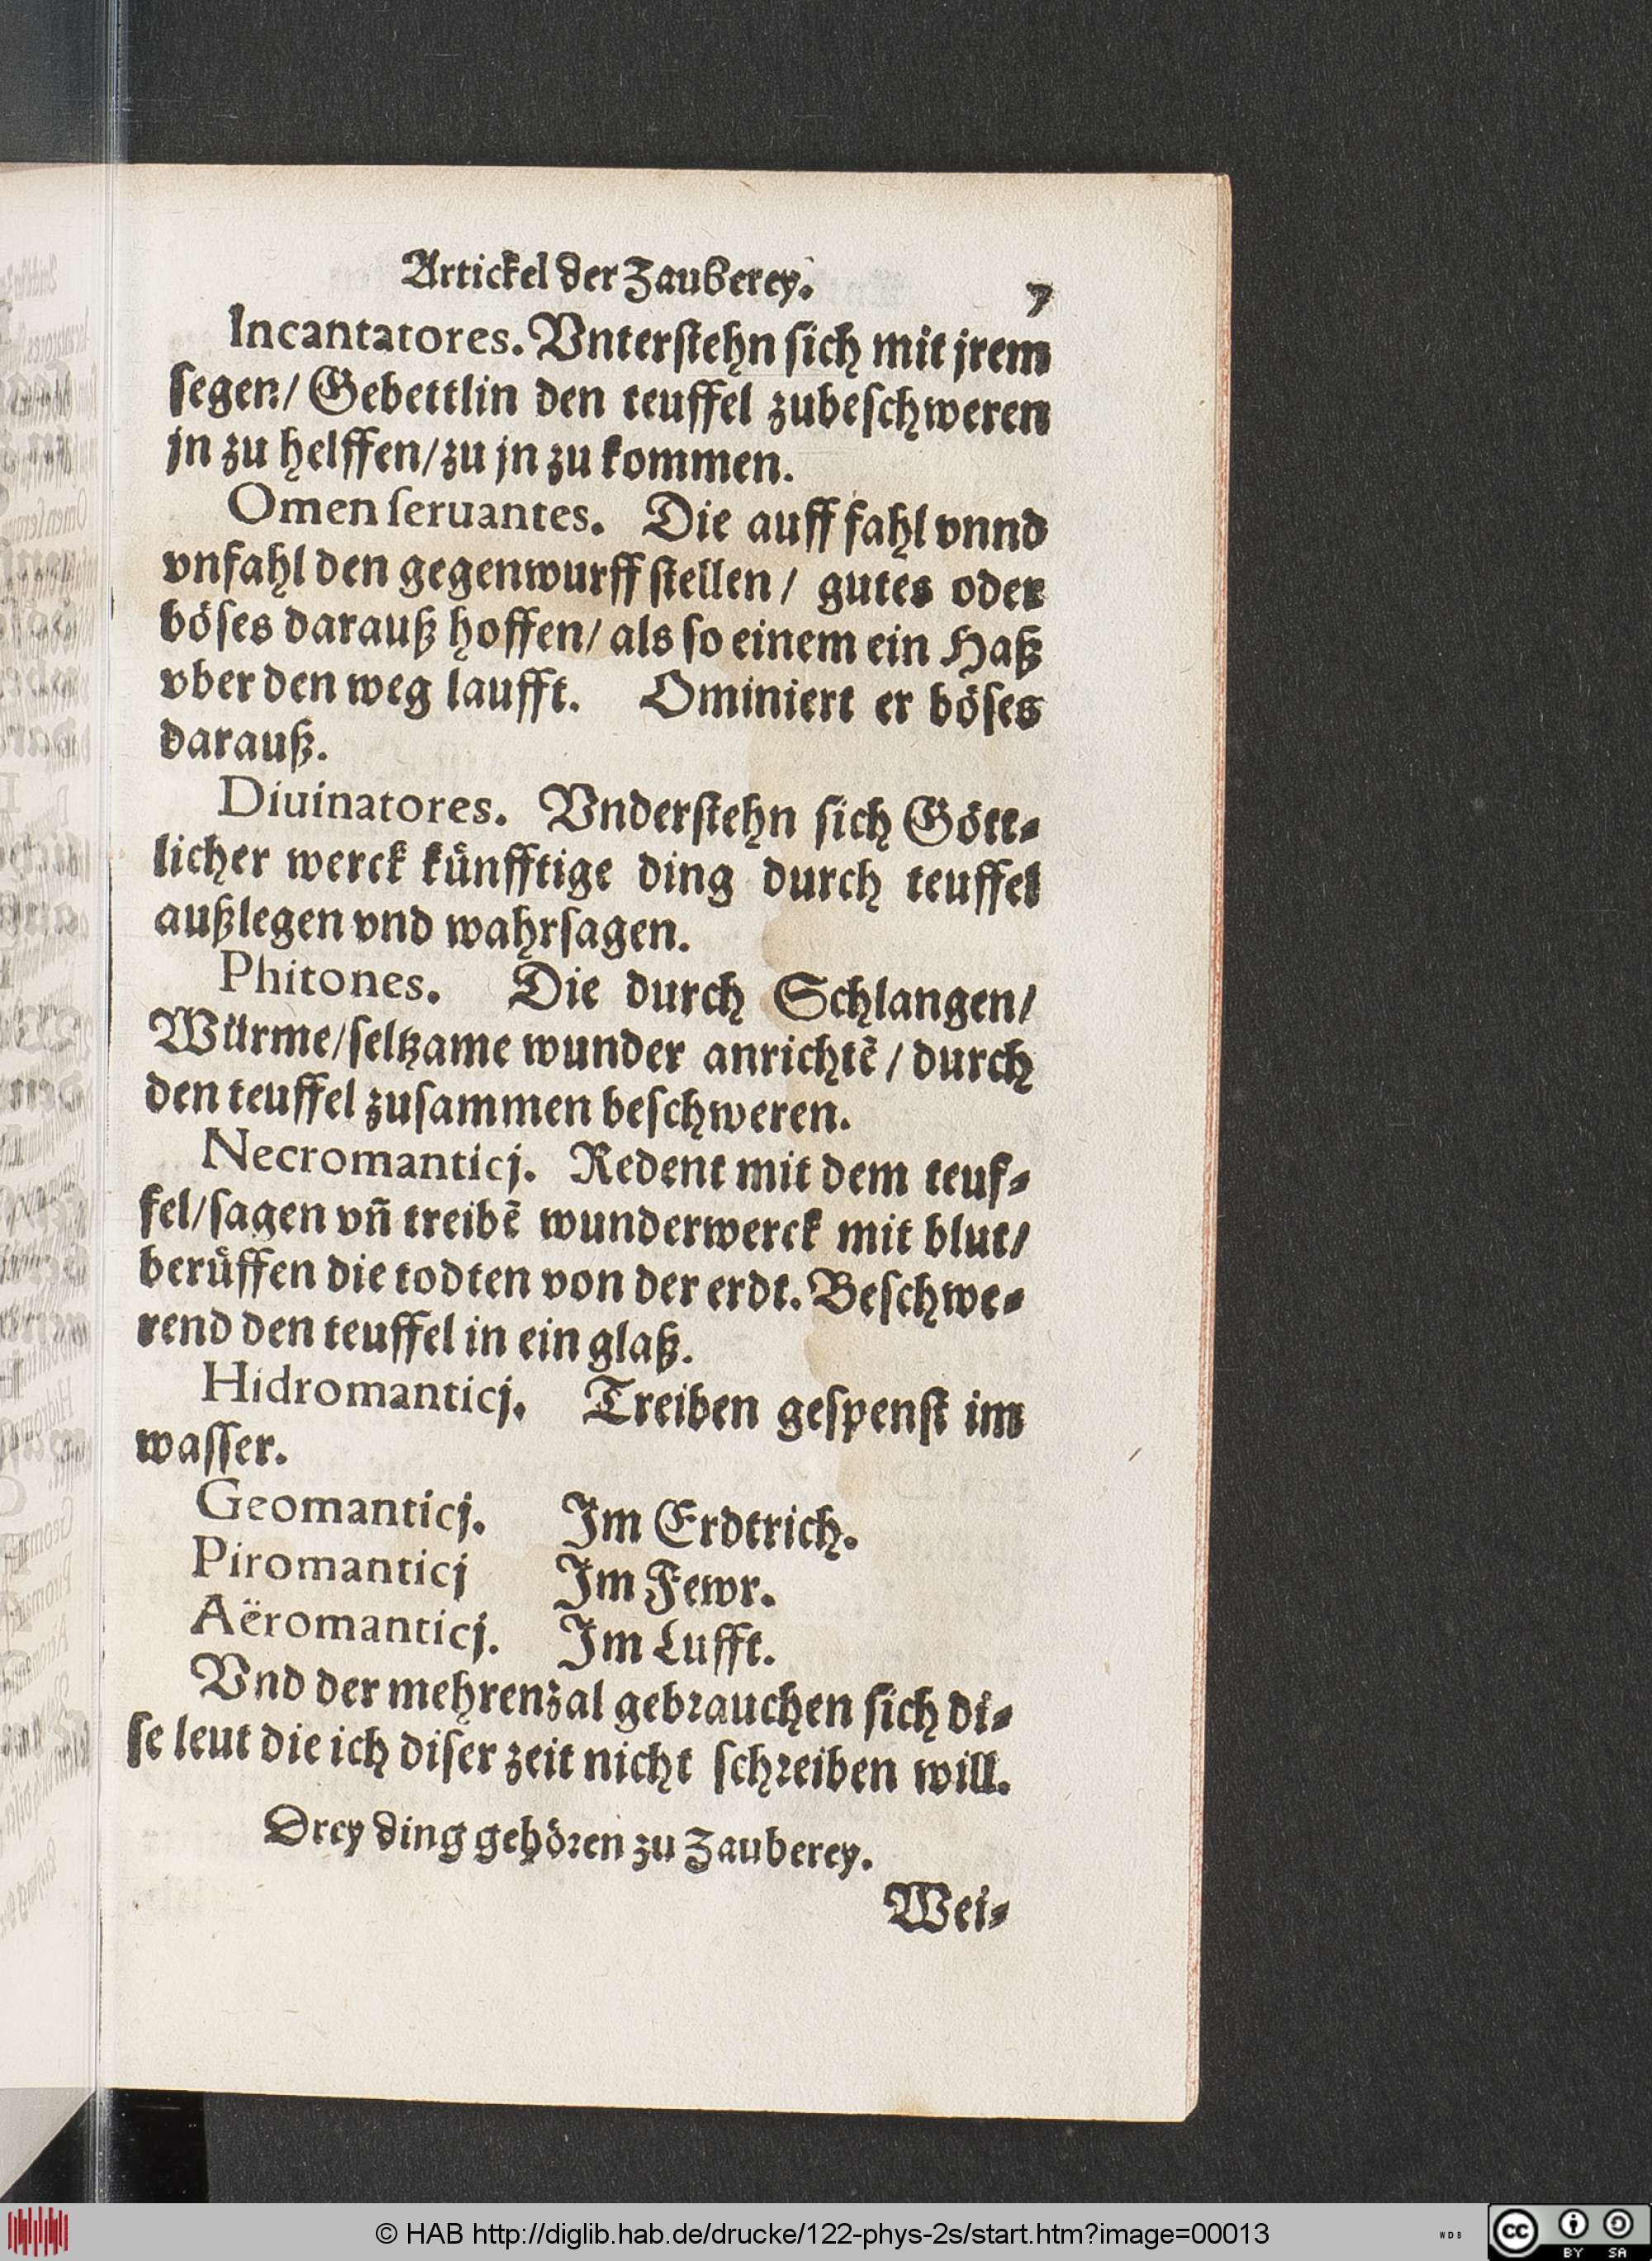 Artickel der Zauberey. 7
Incantatores. Vnterſtehn ſich mit jrem
ſegen/ Gebettlin den teuffel zubeſchweren
jn zu helffen/ zu jn zu kommen.
Omen ſeruantes. Die auff fahl vnnd
vnfahl den gegenwurff ſtellen/ gutes oder
böſes darauß hoffen/ als ſo einem ein Haß
vber den weg laufft. Ominiert er böſes
darauß.
Diuinatores. Vnderſtehn ſich Gött⸗
licher werck künfftige ding durch teuffel
außlegen vnd wahrſagen.
Phitones. Die durch Schlangen/
Würme/ ſeltzame wunder anrichtẽ/ durch
den teuffel zuſammen beſchweren.
Necromanticj. Redent mit dem teuf⸗
fel/ ſagen vñ treibẽ wunderwerck mit blut/
berüffen die todten von der erdt. Beſchwe⸗
rend den teuffel in ein glaß.
Hidromanticj. Treiben geſpenſt im
waſſer.
Geomanticj. Im Erdtrich.
Piromanticj Im Fewr.
Aëromanticj. Im Lufft.
Vnd der mehrenzal gebrauchen ſich di⸗
ſe leut die ich diſer zeit nicht ſchreiben will.
Drey ding gehören zu Zauberey.
Wei⸗
© HAB http://diglib.hab.de/drucke/122-phys-2s/start.htm?image=00013
WDB
cc BY SA